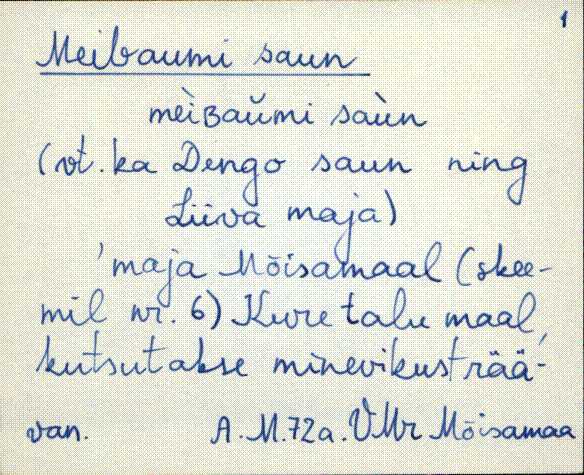 1
Meibaumi saun
mèiʙaŭmi saùn
(vt. ka Dengo saun ning
Liiva maja)
'maja Mõisamaal (skee-
mil nr. 6) Kure talu maal,
kutsutakse minevikust rää-
van. A. M. 72a. VMr Mõisamaa